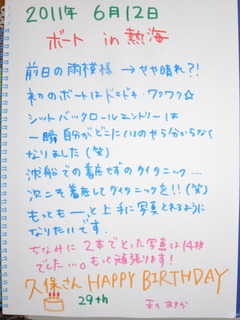 2011年 6月12日
ボート in 熱海
前日の雨模様 → やや晴れ?!
初のボートはドキドキ・ワクワク☆
シットバックロールエントリーは
一瞬自分がどこにいるのやら分からなく
なりました(笑)
沈船での着底せずのタイタニック….
次こそ着底してタイタニックを!!(笑)
もっともーっと上手に写真とれるように
なりたいです.
ちなみに2本でとった写真は14枚
でした…。もっと頑張ります!
久保さん HAPPY BIRTHDAY
29th